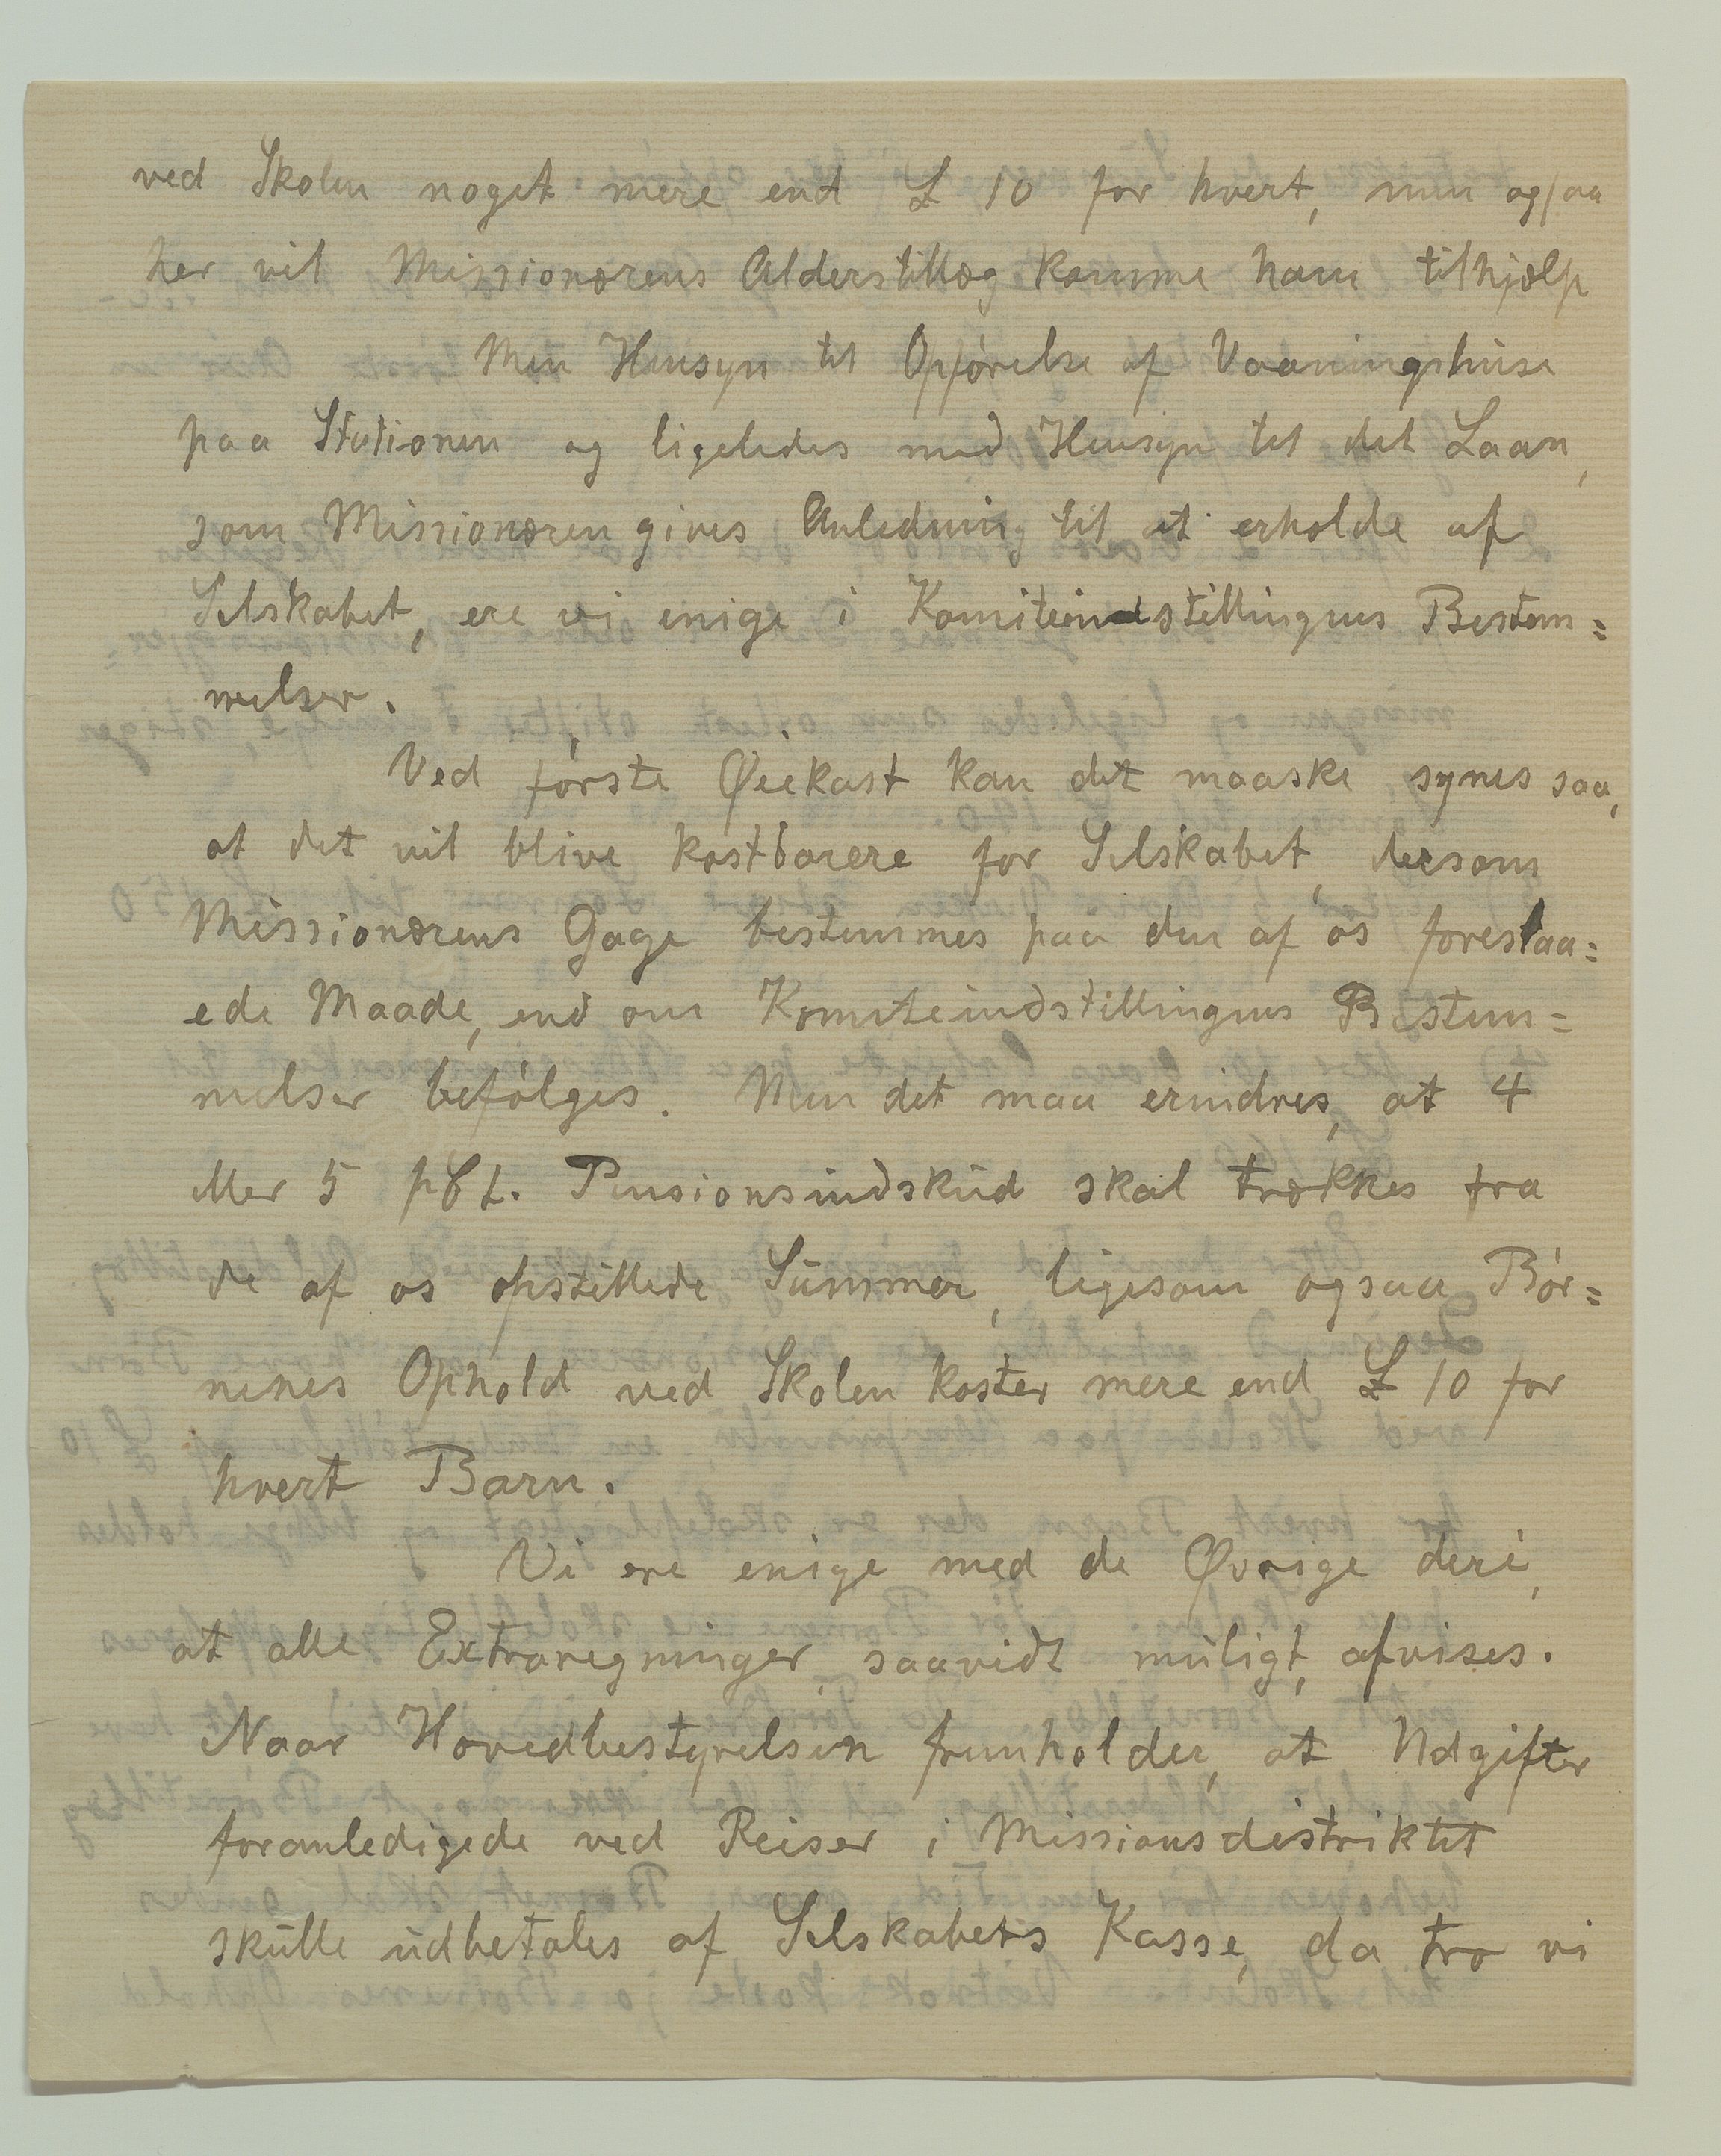 ved Skolen noget mere end £ 10 for hvert, men ogsaa
her vil Missionærens Alderstillæg komme ham tilhjælp
Men Hensyn til Opførelse af Vaaningshuse
paa Stationen og ligeledes med Hensyn til det Laan,
som Missionæren gives Anledning til at erholde af
Selskabet, ere vi enige i Komiteindstillingens Bestem=
melser.
Ved første Øiekast kan det maaske synes saa,
at det vil blive kostbarere for Selskabet, dersom
Missionærens Gage bestemmes paa den af os foreslaa=
ede Maade, end om Komiteindstillingens Bestem=
melser befølges. Men det maa erindres, at 4
eller 5 pCt. Pensionsindskud skal trækkes fra
de af os opstillede Summer, ligesom ogsaa Bør=
nenes Ophold ved Skolen koster mere end £ 10 for
hvert Barn.
Vi ere enige med de Øvrige deri,
at alle Extraregninger, saavidt muligt, afvises.
Naar Hovedbestyrelsen fremholder, at Udgifter
foranledigede ved Reiser i Missionsdistriktet
skulle udbetales af Selskabets Kasse, da tro vi